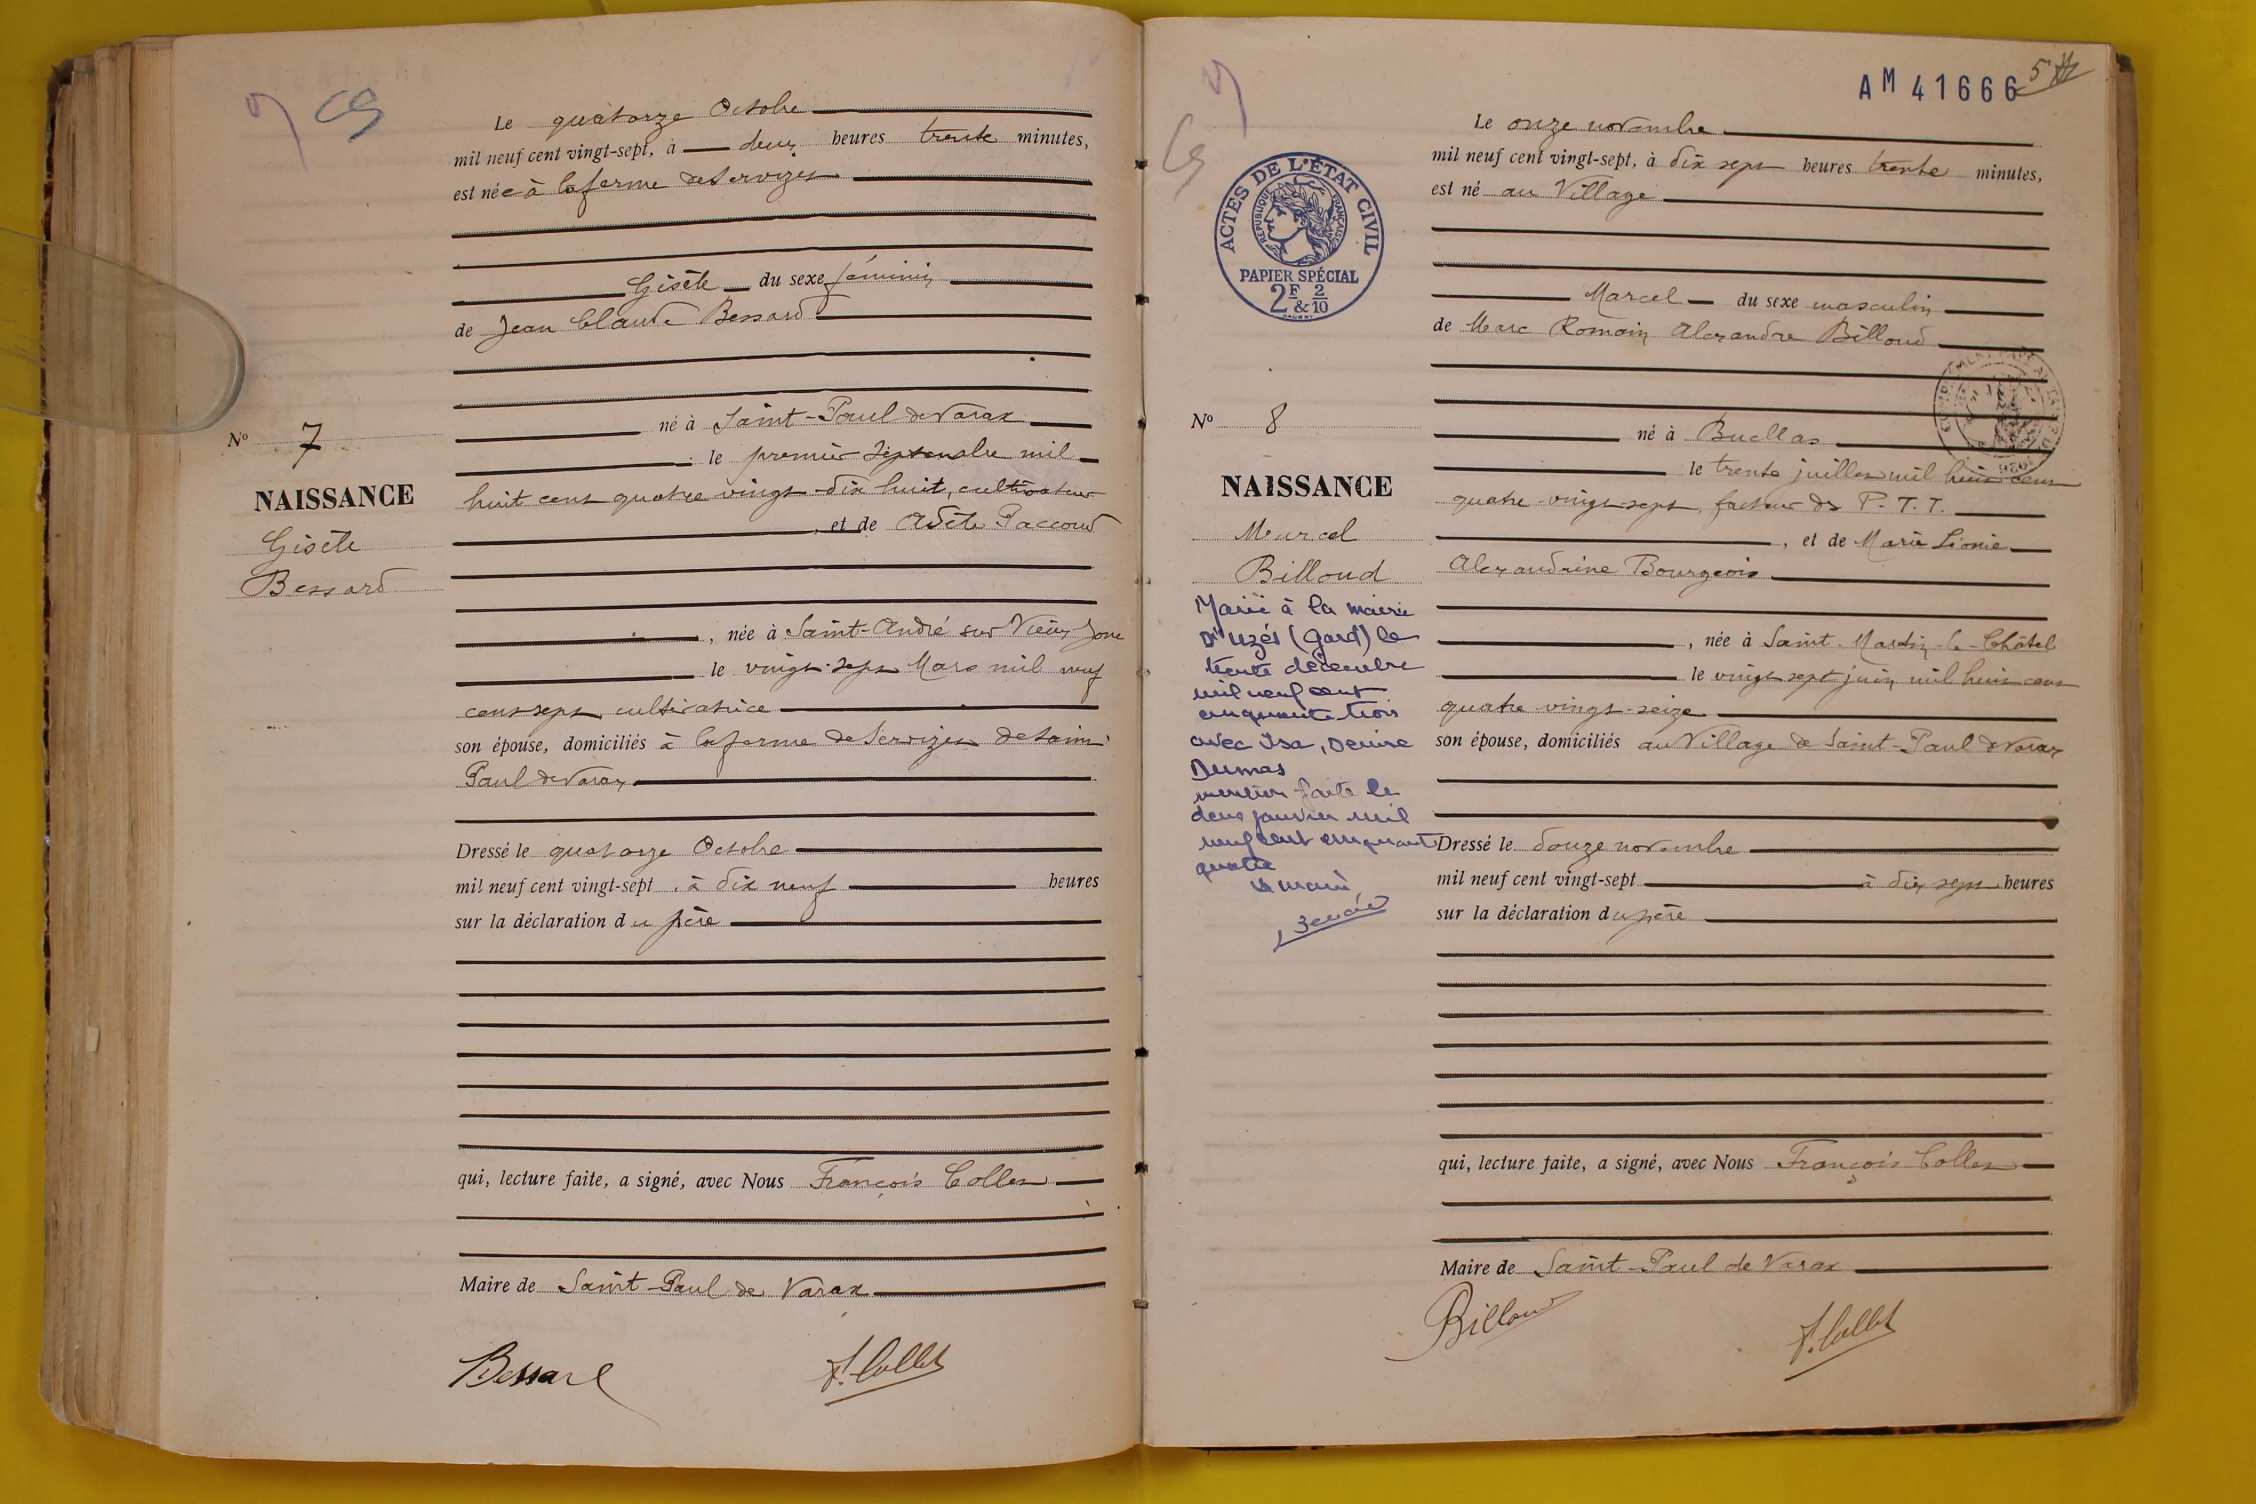 Le quatorze Octobre
mil neuf cent vingt-sept, à deux heures trente minutes,
est née à la ferme de Servizes
Gisèle du sexe féminin
de Jean Claude Bessard
né à Saint-Paul de Varax
le premier Septembre mil
huit cent quatre vingt-dix huit, cultivateur
, et de Adèle Paccoud
, née à Saint-André sur Vieux Jonc
le vingt-sept Mars mil neuf
cent sept, cultivatrice
son épouse, domiciliés à la ferme de Servizes de Saint
Paul de Varax
Dressé le quatorze Octobre
mil neuf cent vingt-sept, à dix neuf heures
sur la déclaration du père
qui, lecture faite, a signé, avec Nous François Collet
Maire de Saint-Paul de Varax
Bessard
F. Collet
No 7
NAISSANCE
Gisèle
Bessard
AM 41666
5
Le onze novembre
mil neuf cent vingt-sept, à dix sept heures trente minutes,
est né au Village
Marcel du sexe masculin
de Marc Romain Alexandre Billoud
né à Buellas
le trente juillet mil huit cent
quatre vingt-sept, facteur des P.T.T.
, et de Marie Léonie
Alexandrine Bourgeois
, née à Saint-Martin-le-Châtel
le vingt sept juin mil huit cent
quatre vingt-seize
son épouse, domiciliés au Village de Saint-Paul de Varax
Dressé le douze novembre
mil neuf cent vingt-sept à dix sept heures
sur la déclaration du père
qui, lecture faite, a signé, avec Nous François Collet
Maire de Saint-Paul de Varax
Billoud
F. Collet
ACTES DE L'ÉTAT CIVIL
RÉPUBLIQUE FRANÇAISE
PAPIER SPÉCIAL
2F & 2/10
No 8
NAISSANCE
Marcel
Billoud
Marié à la mairie
D'Uzés (Gard) le
trente décembre
mil neuf cent
cinquante trois
avec Isa, Denise
Dumas
mention faite le
deux janvier mil
neuf cent cinquante
quatre
le maire